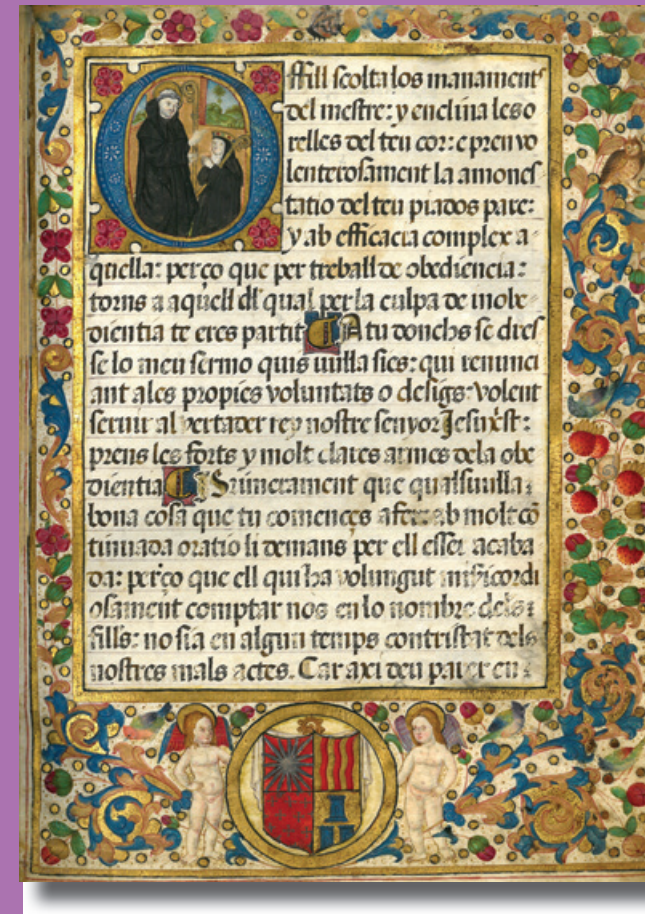 O ffill scolta los manament
del mestre: y enclina les o
relles del teu cor: e pren vo
lenterosament la amones
tatio del teu piados pare:
y ab efficacia complex a
quella: perço que per treball de obediencia:
torns a aquell dl qual per la culpa de inobe
dientia te eres partit A tu donchs se dres
se lo meu sermo quis vulla sies: qui renunci
ant a les propies voluntats o desigs: volent
seruir al vertader rey nostre senyor Jesu xpst:
prens les forts y molt clares armes dela obe
dientia Primerament que qualsuulla
bona cosa que tu comences afer: ab molt cō
tinuada oratio li demans per ell esser acaba
da: perço que ell qui ha volungut misicordi
osament comptar nos en lo nombre dels
fills: no sia en algun temps contristat dels
nostres mals actes. Car axi deu pater en